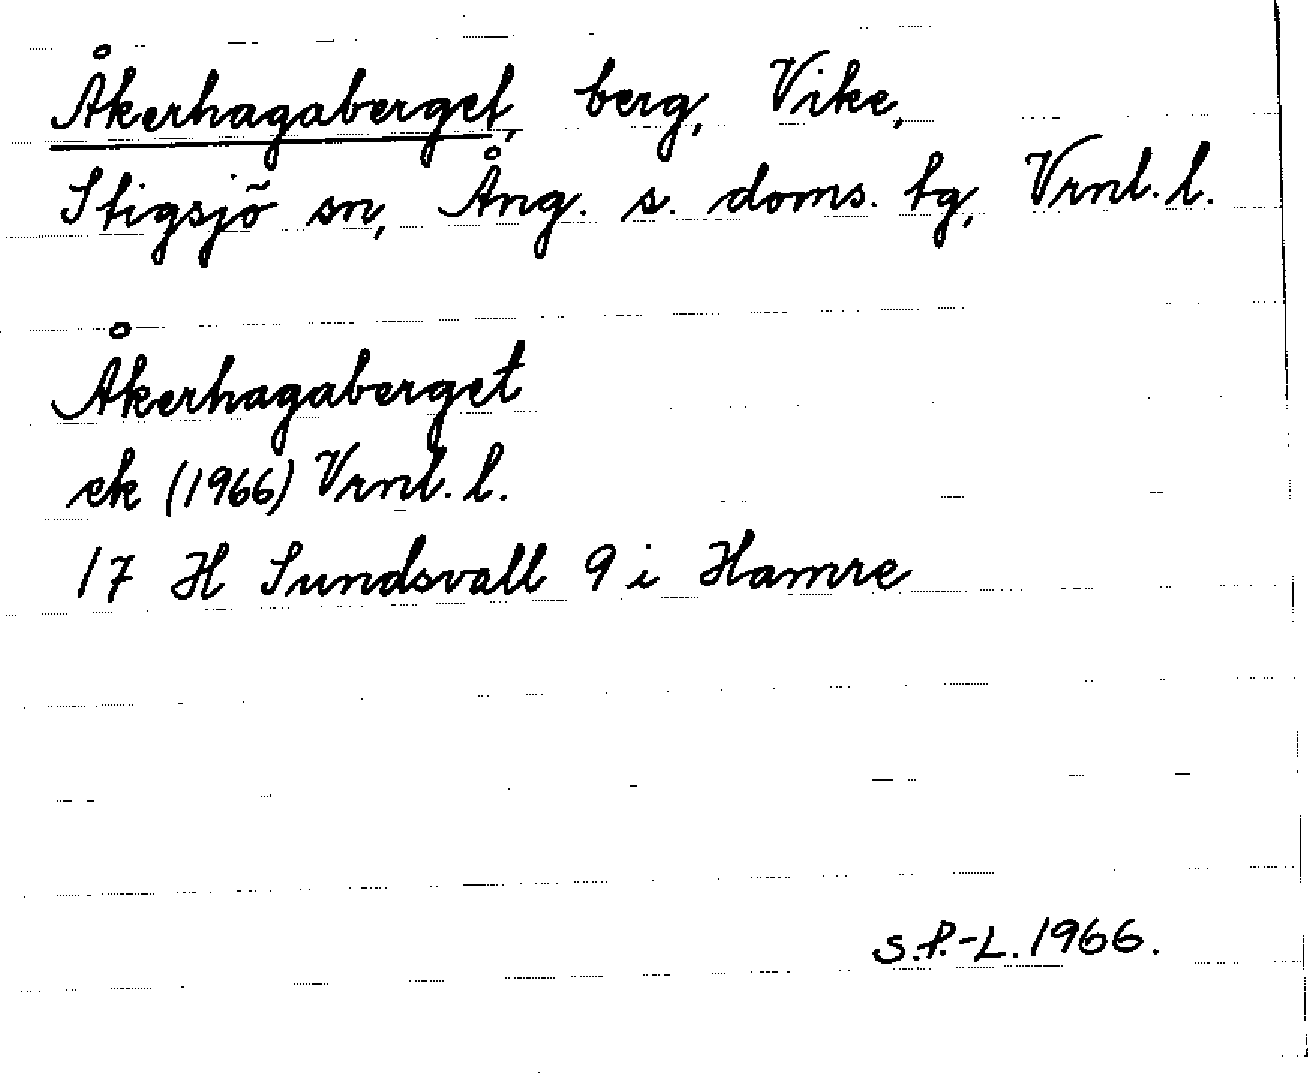 Åkerhagaberget, berg, Vike,
Stigsjö sn, Ång. s. doms. tg, Vrnl. l.
Åkerhagaberget
ek (1966) Vrnl. l.
17 H Sundsvall 9 i Hamre
S.P.-L. 1966.